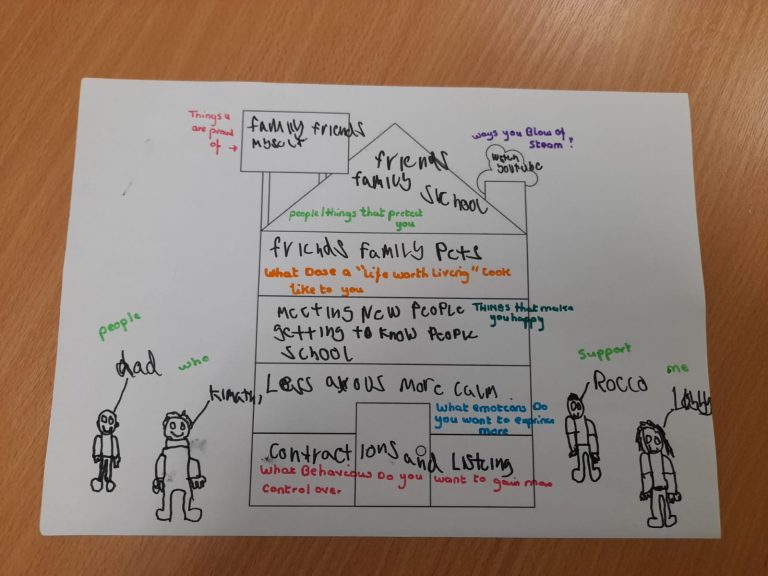 Things u
are proud
of →
family friends
myself
ways you Blow of
Steam?
watch
youtube
friends
family
School
people/things that protect
you
friends Family Pets
What Dose a "Life worth Livering" Look
like to you
Meeting New People
getting to know People
School
THINGS that make
you happy
people
who
support
me
dad
Rocco
Less axous More calm
What emotions Do
you want to exprince
more
contractions and Listing
What Behaviours Do you want to gain more
Control over